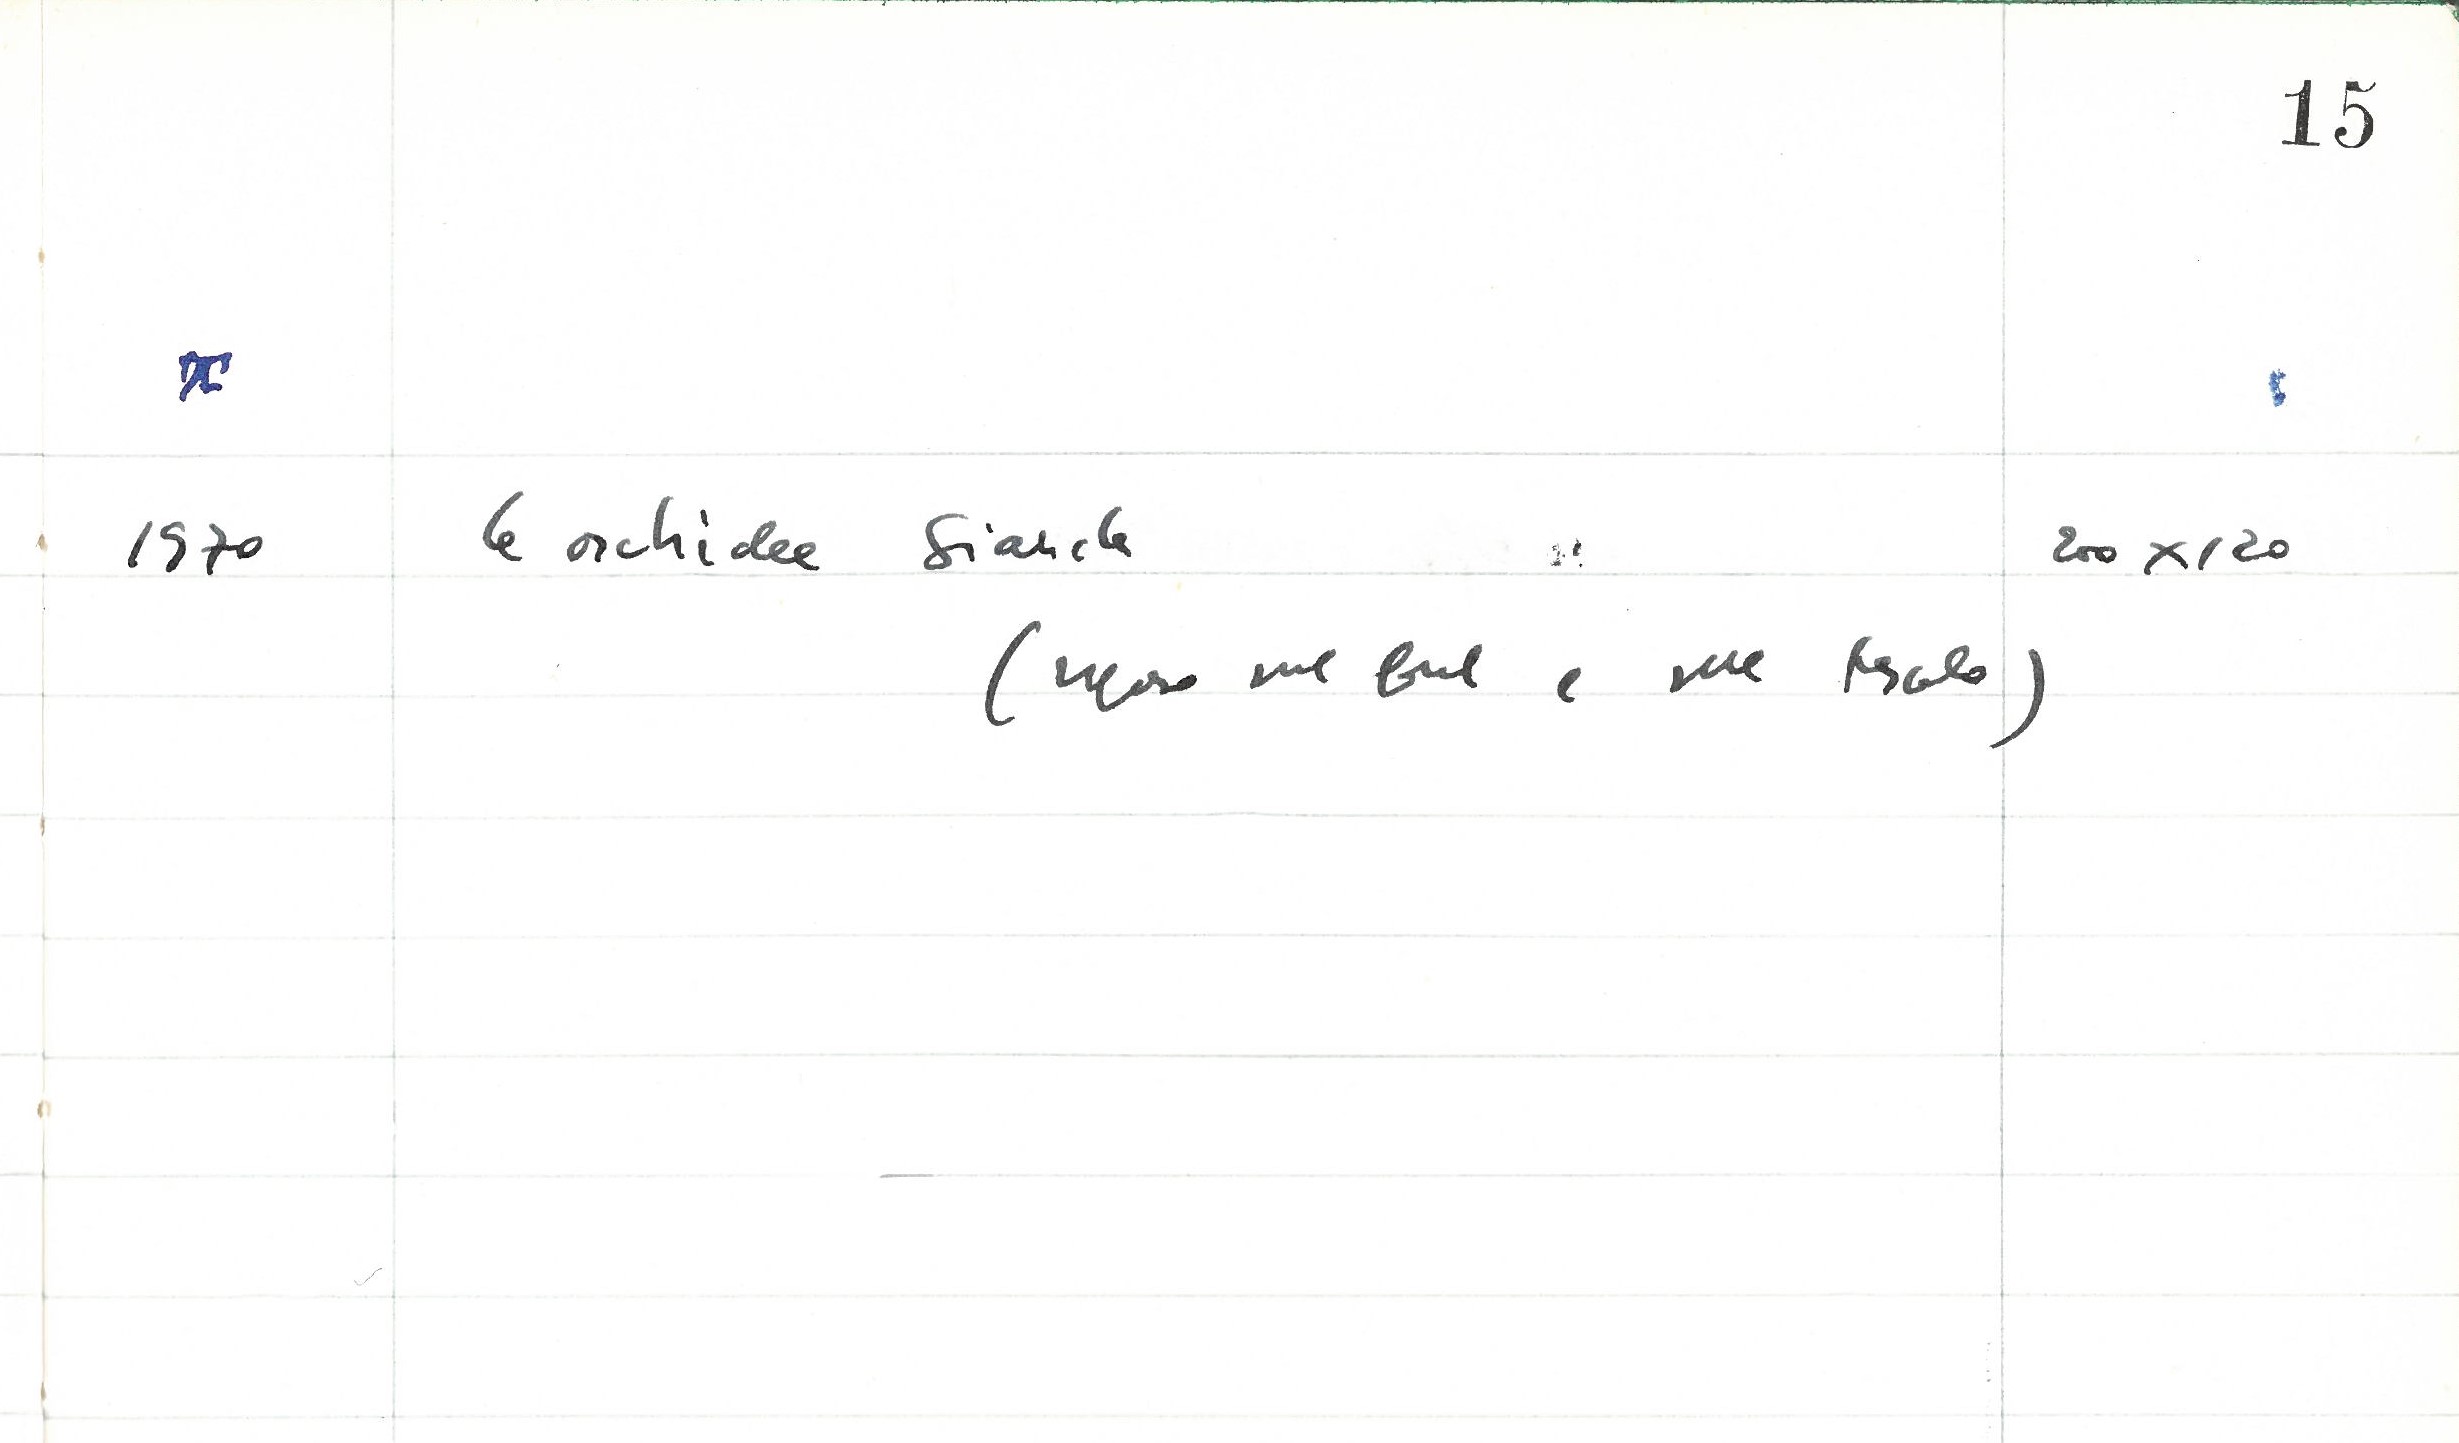 15
1970 le orchidee bianche 200 x 120
( sul e sul )